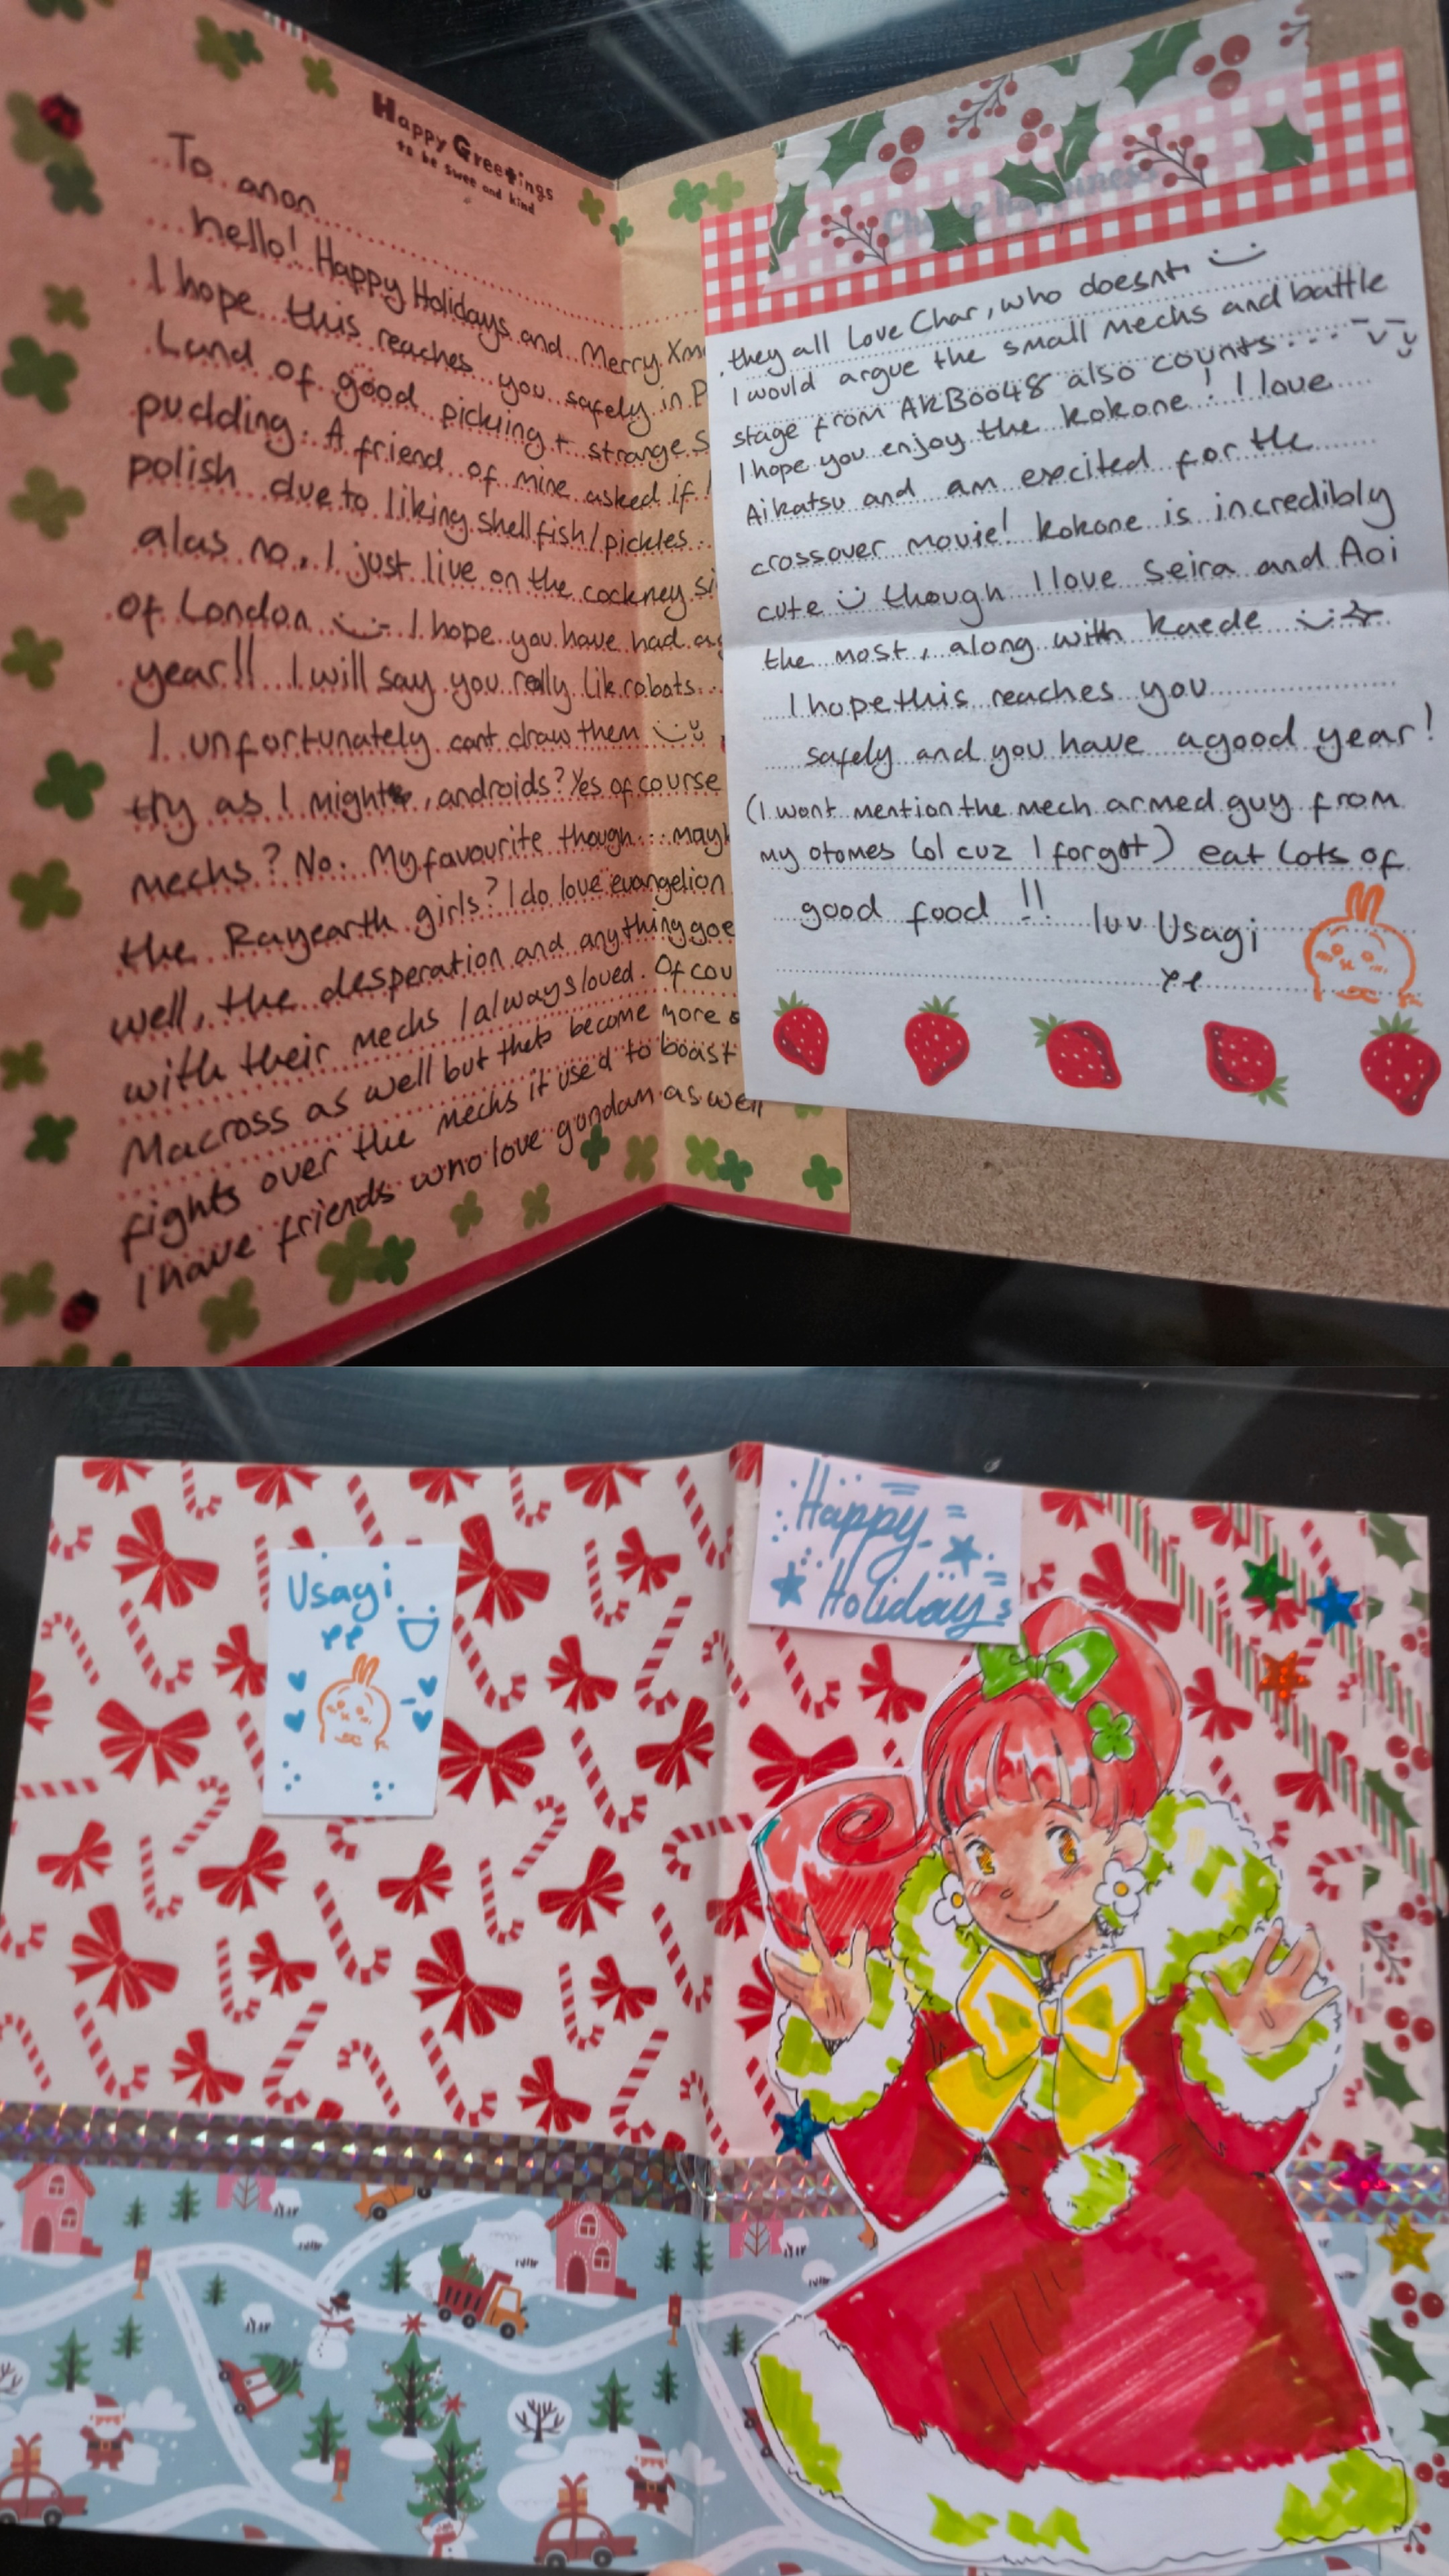 Happy Greetings
to be swee and kind
To anon
hello! Happy Holidays and Merry Xm
I hope this reaches you safely in P
Land of good pickiing + strange s
pudding. A friend of mine asked if I
polish due to liking shellfish/pickles
alas no, I just live on the cockney si
of London I hope you have had a g
year!! I will say you really lik robots..
I unfortunately cant draw them
try as I might, androids? Yes of course
mechs? No. My favourite though... mayb
the Rayearth girls? I do love evangelion
well, the desperation and anything goe
with their mechs I always loved. Of cou
Macross as well but thats become more o
fights over the mechs it used to boast
I have friends who love gundam as well
they all love Char, who doesnt
I would argue the small mechs and battle
stage from AKB0048 also counts...
I hope you enjoy the kokone! I love
Aikatsu and am excited for the
crossover movie! kokone is incredibly
cute though I love Seira and Aoi
the most, along with kaede
I hope this reaches you
safely and you have a good year!
(I wont mention the mech armed guy from
my otomes lol cuz I forgot) eat lots of
good food !! luv Usagi
Usagi
Happy
Holidays